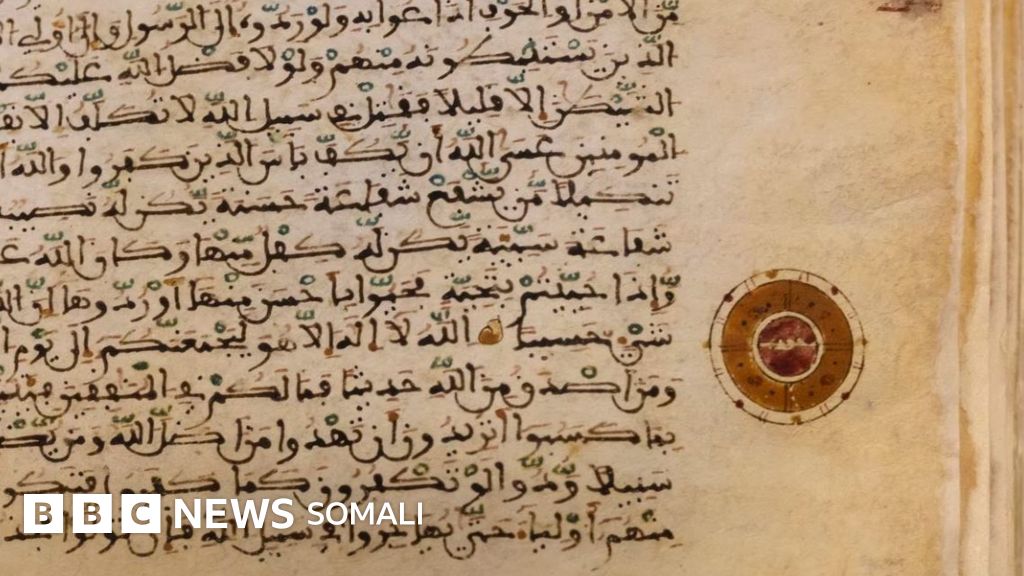 مِّنَ الَامْنِ أَوِ الْخَوْفِ أَذَاعُوا بِهِ وَلَوْ رَدُّوهُ إِلَى الرَّسُولِ وَإِلَى أُولِي
الَّذِينَ يَسْتَنْبِطُونَهُ مِنْهُمْ وَلَوْلَا فَضْلُ اللَّهِ عَلَيْكُمْ
الشَّيْطَنَ إِلَّا قَلِيلًا فَقَتِلْ فِي سَبِيلِ اللَّهِ لَا تُكَلَّفُ إِلَّا
الْمُومِنِينَ عَسَى اللَّهُ أَنْ يَّكُفَّ بَأْسَ الَّذِينَ كَفَرُوا وَاللَّهُ
تَنكِيلًا مَّنْ يَّشْفَعْ شَفَعَةً حَسَنَةً يَكُن لَّهُ نَصِيبٌ
شَفَعَةً سَيِّئَةً يَكُن لَّهُ كِفْلٌ مِّنْهَا وَكَانَ اللَّهُ
وَإِذَا حُيِّيتُمْ بِتَحِيَّةٍ فَحَيُّوا بِأَحْسَنَ مِنْهَا أَوْ رُدُّوهَا إِنَّ
شَيْءٍ حَسِيبًا اللَّهُ لَا إِلَهَ إِلَّا هُوَ لَيَجْمَعَنَّكُمْ إِلَى يَوْمِ
وَمَنْ أَصْدَقُ مِنَ اللَّهِ حَدِيثًا فَمَا لَكُمْ فِي الْمُنَفِقِينَ
بِمَا كَسَبُوا أَتُرِيدُونَ أَنْ تَهْدُوا مَنْ أَضَلَّ اللَّهُ وَمَنْ
سَبِيلًا وَدُّوا لَوْ تَكْفُرُونَ كَمَا كَفَرُوا
مِنْهُمْ أَوْلِيَاءَ حَتَّى يُهَاجِرُوا فِي سَبِيلِ اللَّهِ فَإِن تَوَلَّوْا
BBC NEWS SOMALI